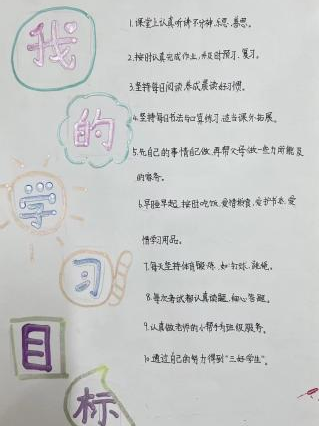 我的学习目标
1.课堂上认真听讲不分神,乐思、善思。
2.按时认真完成作业,并及时预习、复习。
3.坚持每日阅读,养成晨读好习惯。
4.坚持每日书法与口算练习,适当课外拓展。
5.先自己的事情自己做,再帮父母做一些力所能及
的家务。
6.早睡早起,按时吃饭,爱惜粮食,爱护书本,爱
惜学习用品。
7.每天坚持体育锻炼,如:打球、跳绳。
8.每次考试都认真读题,细心答题。
9.认真做老师的小帮手为班级服务。
10.通过自己的努力得到“三好学生”。